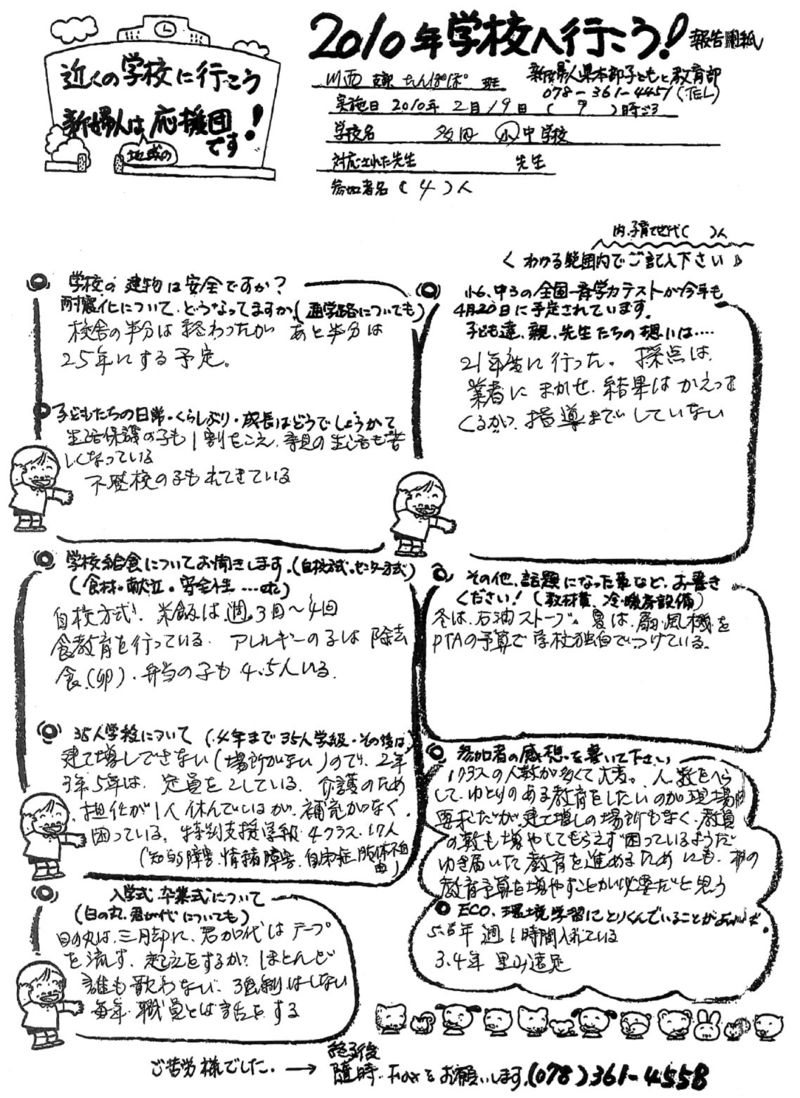 2010年学校へ行こう! 報告用紙
近くの学校に行こう
新婦人は応援団
地域の
です!
川西支部 たんぽぽ 班
新婦人県本部子どもと教育部
078-361-4451(TEL)
実施日 2010年 2月19日 ( 9 )時ごろ
学校名 小中学校
対応された先生 先生
参加者名(4)人
内.子育て世代( )人
〈わかる範囲内でご記入下さい〉
学校の建物は安全ですか?
耐震化について、どうなってますか(通学路についても)
校舎の半分は終わったが あと半分は
25年にする予定。
小6、中3の全国一斉学力テストが今年も
4月20日に予定されています。
子ども達、親、先生たちの想いは....
21年度に行った。採点は、
業者にまかせ、結果はかえって
くるが、指導まで、していない
子どもたちの日常・くらしぶり・成長はどうでしょうか
生活保護の子も1割をこえ、の生活も苦
しくなっている
不登校の子もでてきている
学校給食についてお聞きします。(自校方式・センター方式)
(食材・献立・安全性....etc)
自校方式、米飯は週3回〜4回
食教育を行っている。アレルギーの子は除去
食(卵)、弁当の子も4.5人いる。
その他、話題になった事など、お書き
ください!(教材費、冷・暖房設備)
冬は、石油ストーブ。夏は、扇風機を
PTAの予算で学校独自でつけている。
35人学校について (.4年まで35人学級・その後は)
建て増しできない(場所がない)ので、2年
3年5年は、定員を2している。介護のため
担任が1人休んでいるが、補充がなく
困っている。特別支援学級 4クラス、17人
(知的障害、情緒障害、自閉症、肢体不自由)
参加者の感想を書いて下さい
1クラスの人数が多くて大変。人数をへら
して、ゆとりのある教育をしたいのが現場の
要求だが建て増しの場所もなく、教員
の数も増やしてもらえず困っているようだ
ゆき届いた教育を進めるためにも、の
教育予算を増やすことが必要だと思う
入学式 卒業式について
(日の丸、君が代についても)
日の丸は、三脚に、君が代はテープ
を流す、起立をするが、ほとんど
誰も歌わない、強制はしない
毎年、職員とは話をする
ECO、環境学習にとりくんでいることが
5.6年 週1時間入れている
3.4年 里山遠足
ご苦労様でした. → 終了後
随時・Faxをお願いします。(078)361-4558